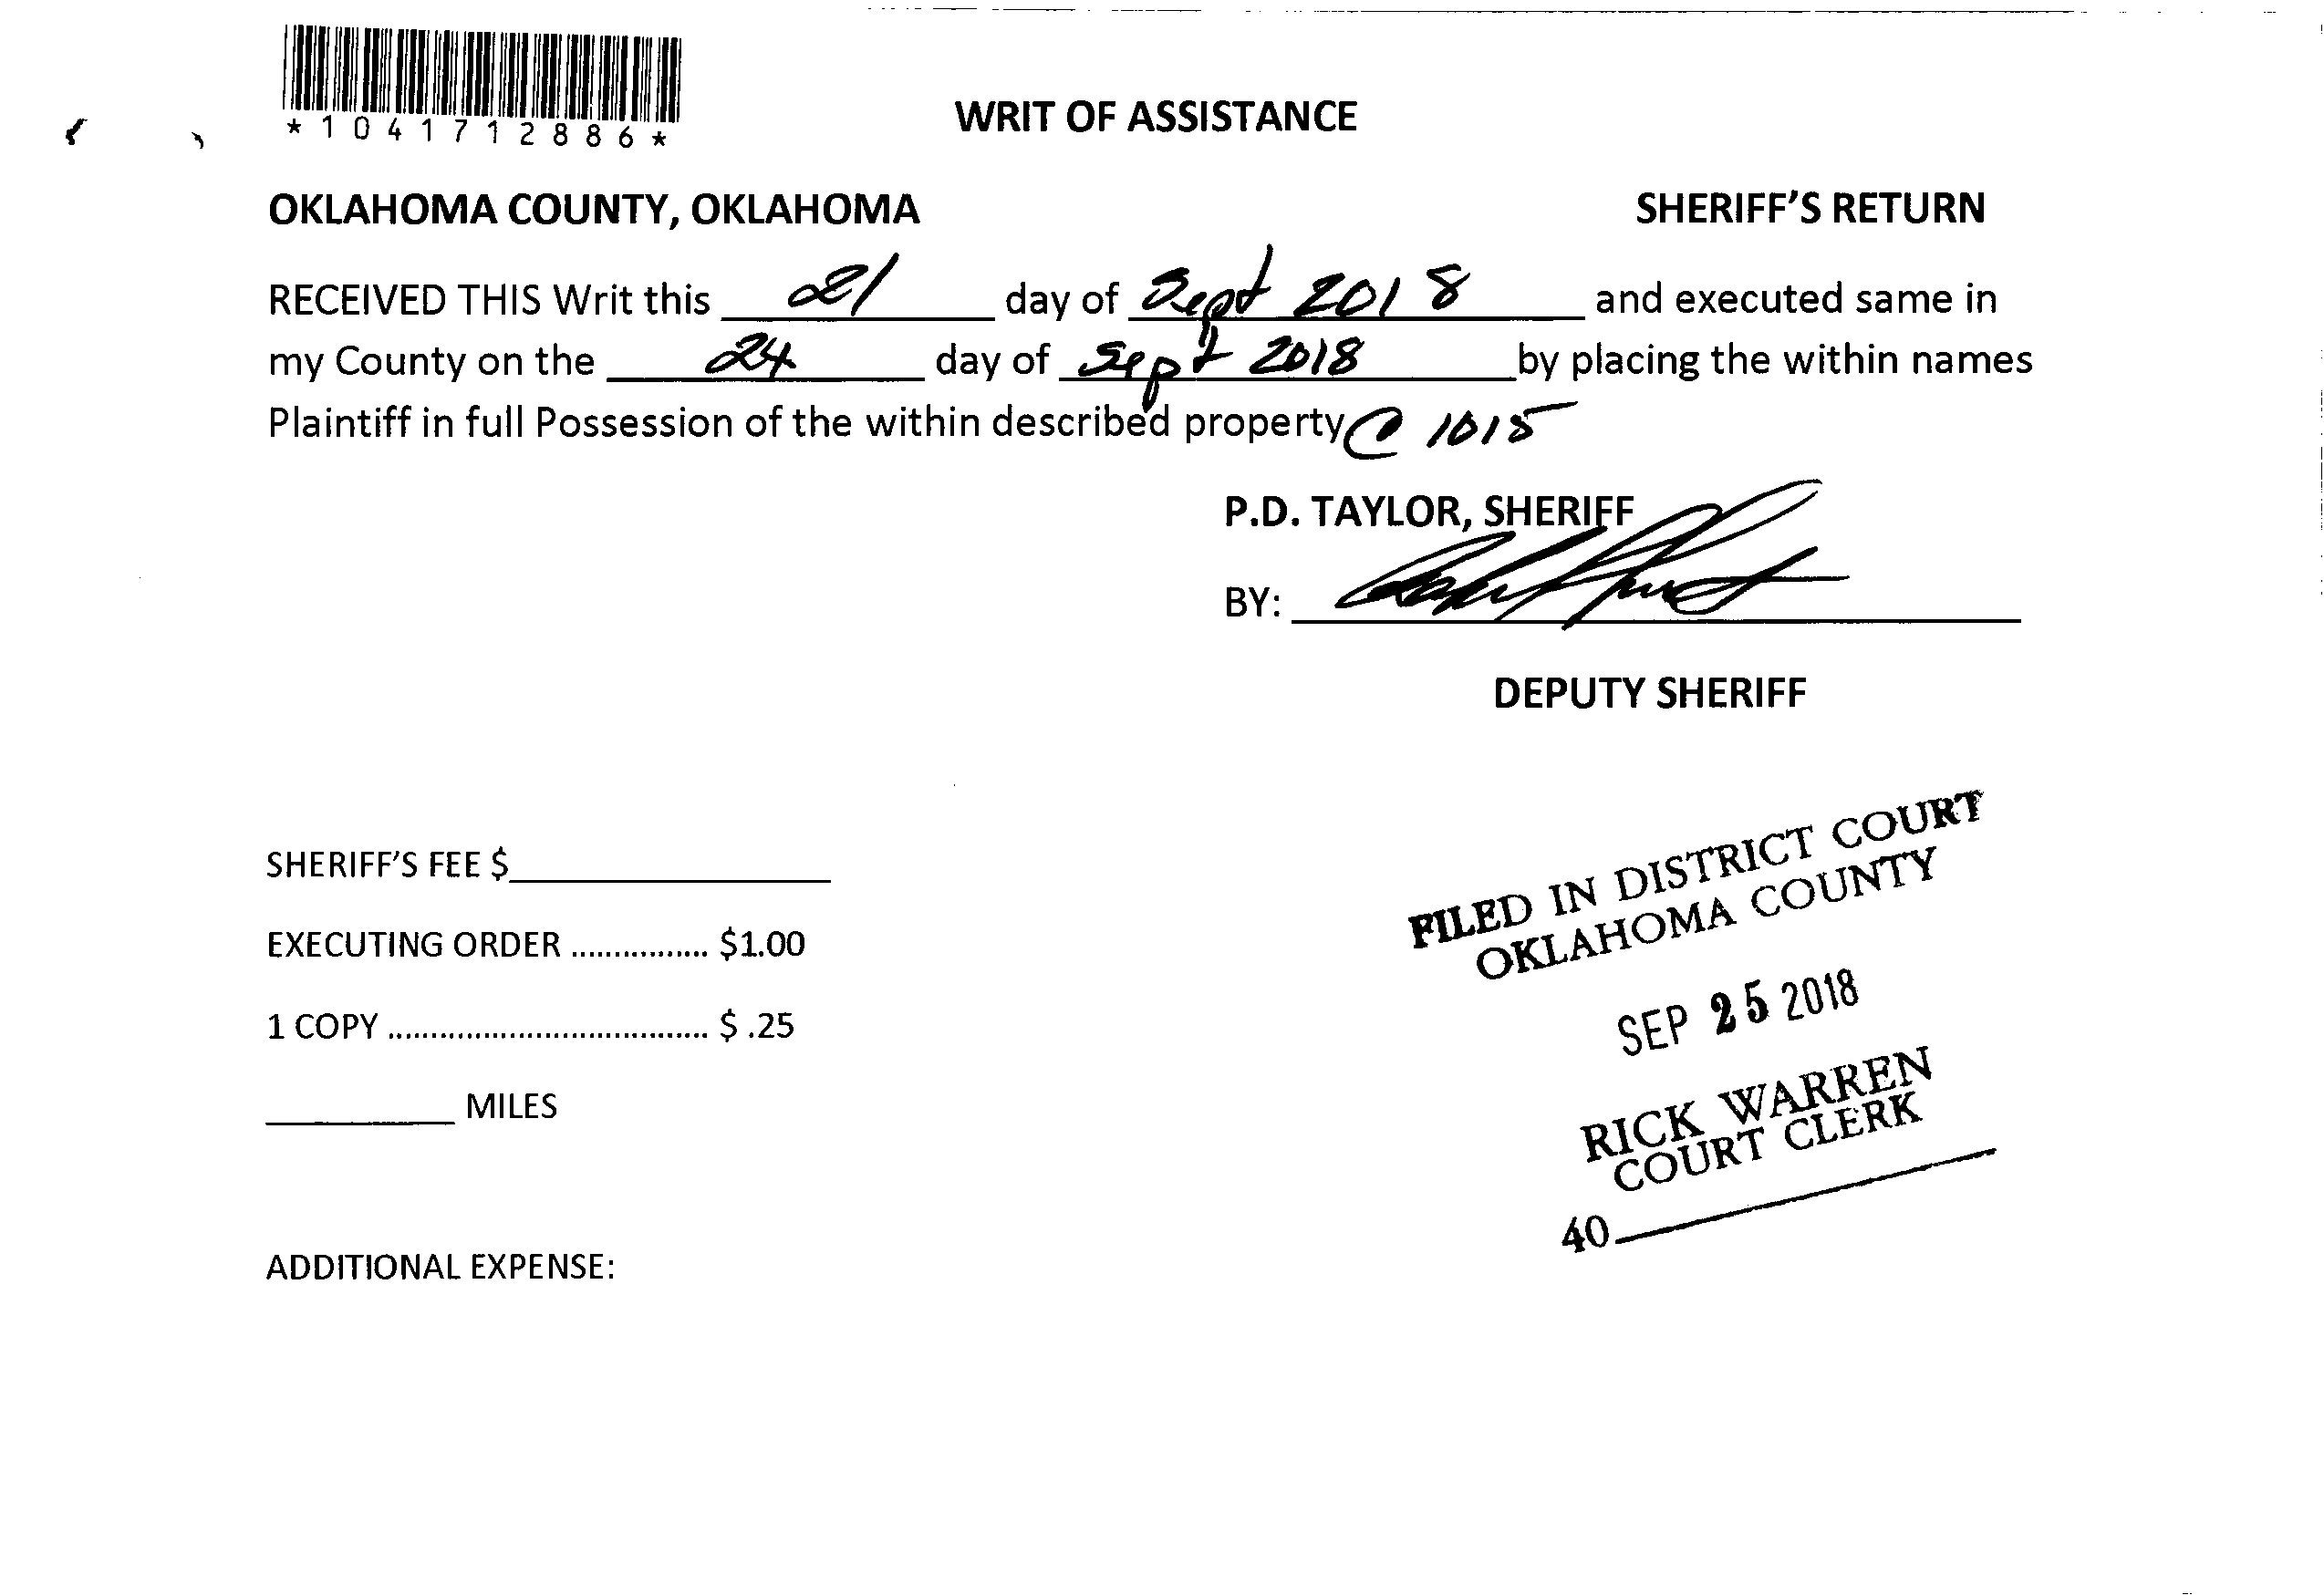 *1041712886*
WRIT OF ASSISTANCE
OKLAHOMA COUNTY, OKLAHOMA SHERIFF'S RETURN
RECEIVED THIS Writ this 21 day of Sept 2018 and executed same in
my County on the 24 day of Sept 2018 by placing the within names
Plaintiff in full Possession of the within described property @ 1015
P.D. TAYLOR, SHERIFF
BY:
DEPUTY SHERIFF
SHERIFF'S FEE $
EXECUTING ORDER ................ $1.00
1 COPY ..................................... $ .25
MILES
ADDITIONAL EXPENSE:
FILED IN DISTRICT COURT
OKLAHOMA COUNTY
SEP 25 2018
RICK WARREN
COURT CLERK
40